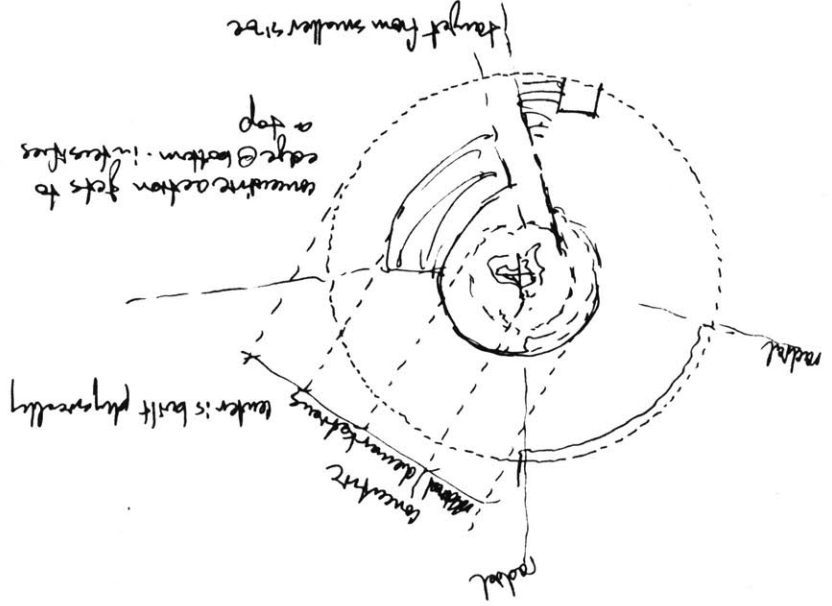 radial
concentric
demarkations
center is built physically
radial
concentric action gets to
edge @ bottom - intensifies
@ top
tanget from smaller size